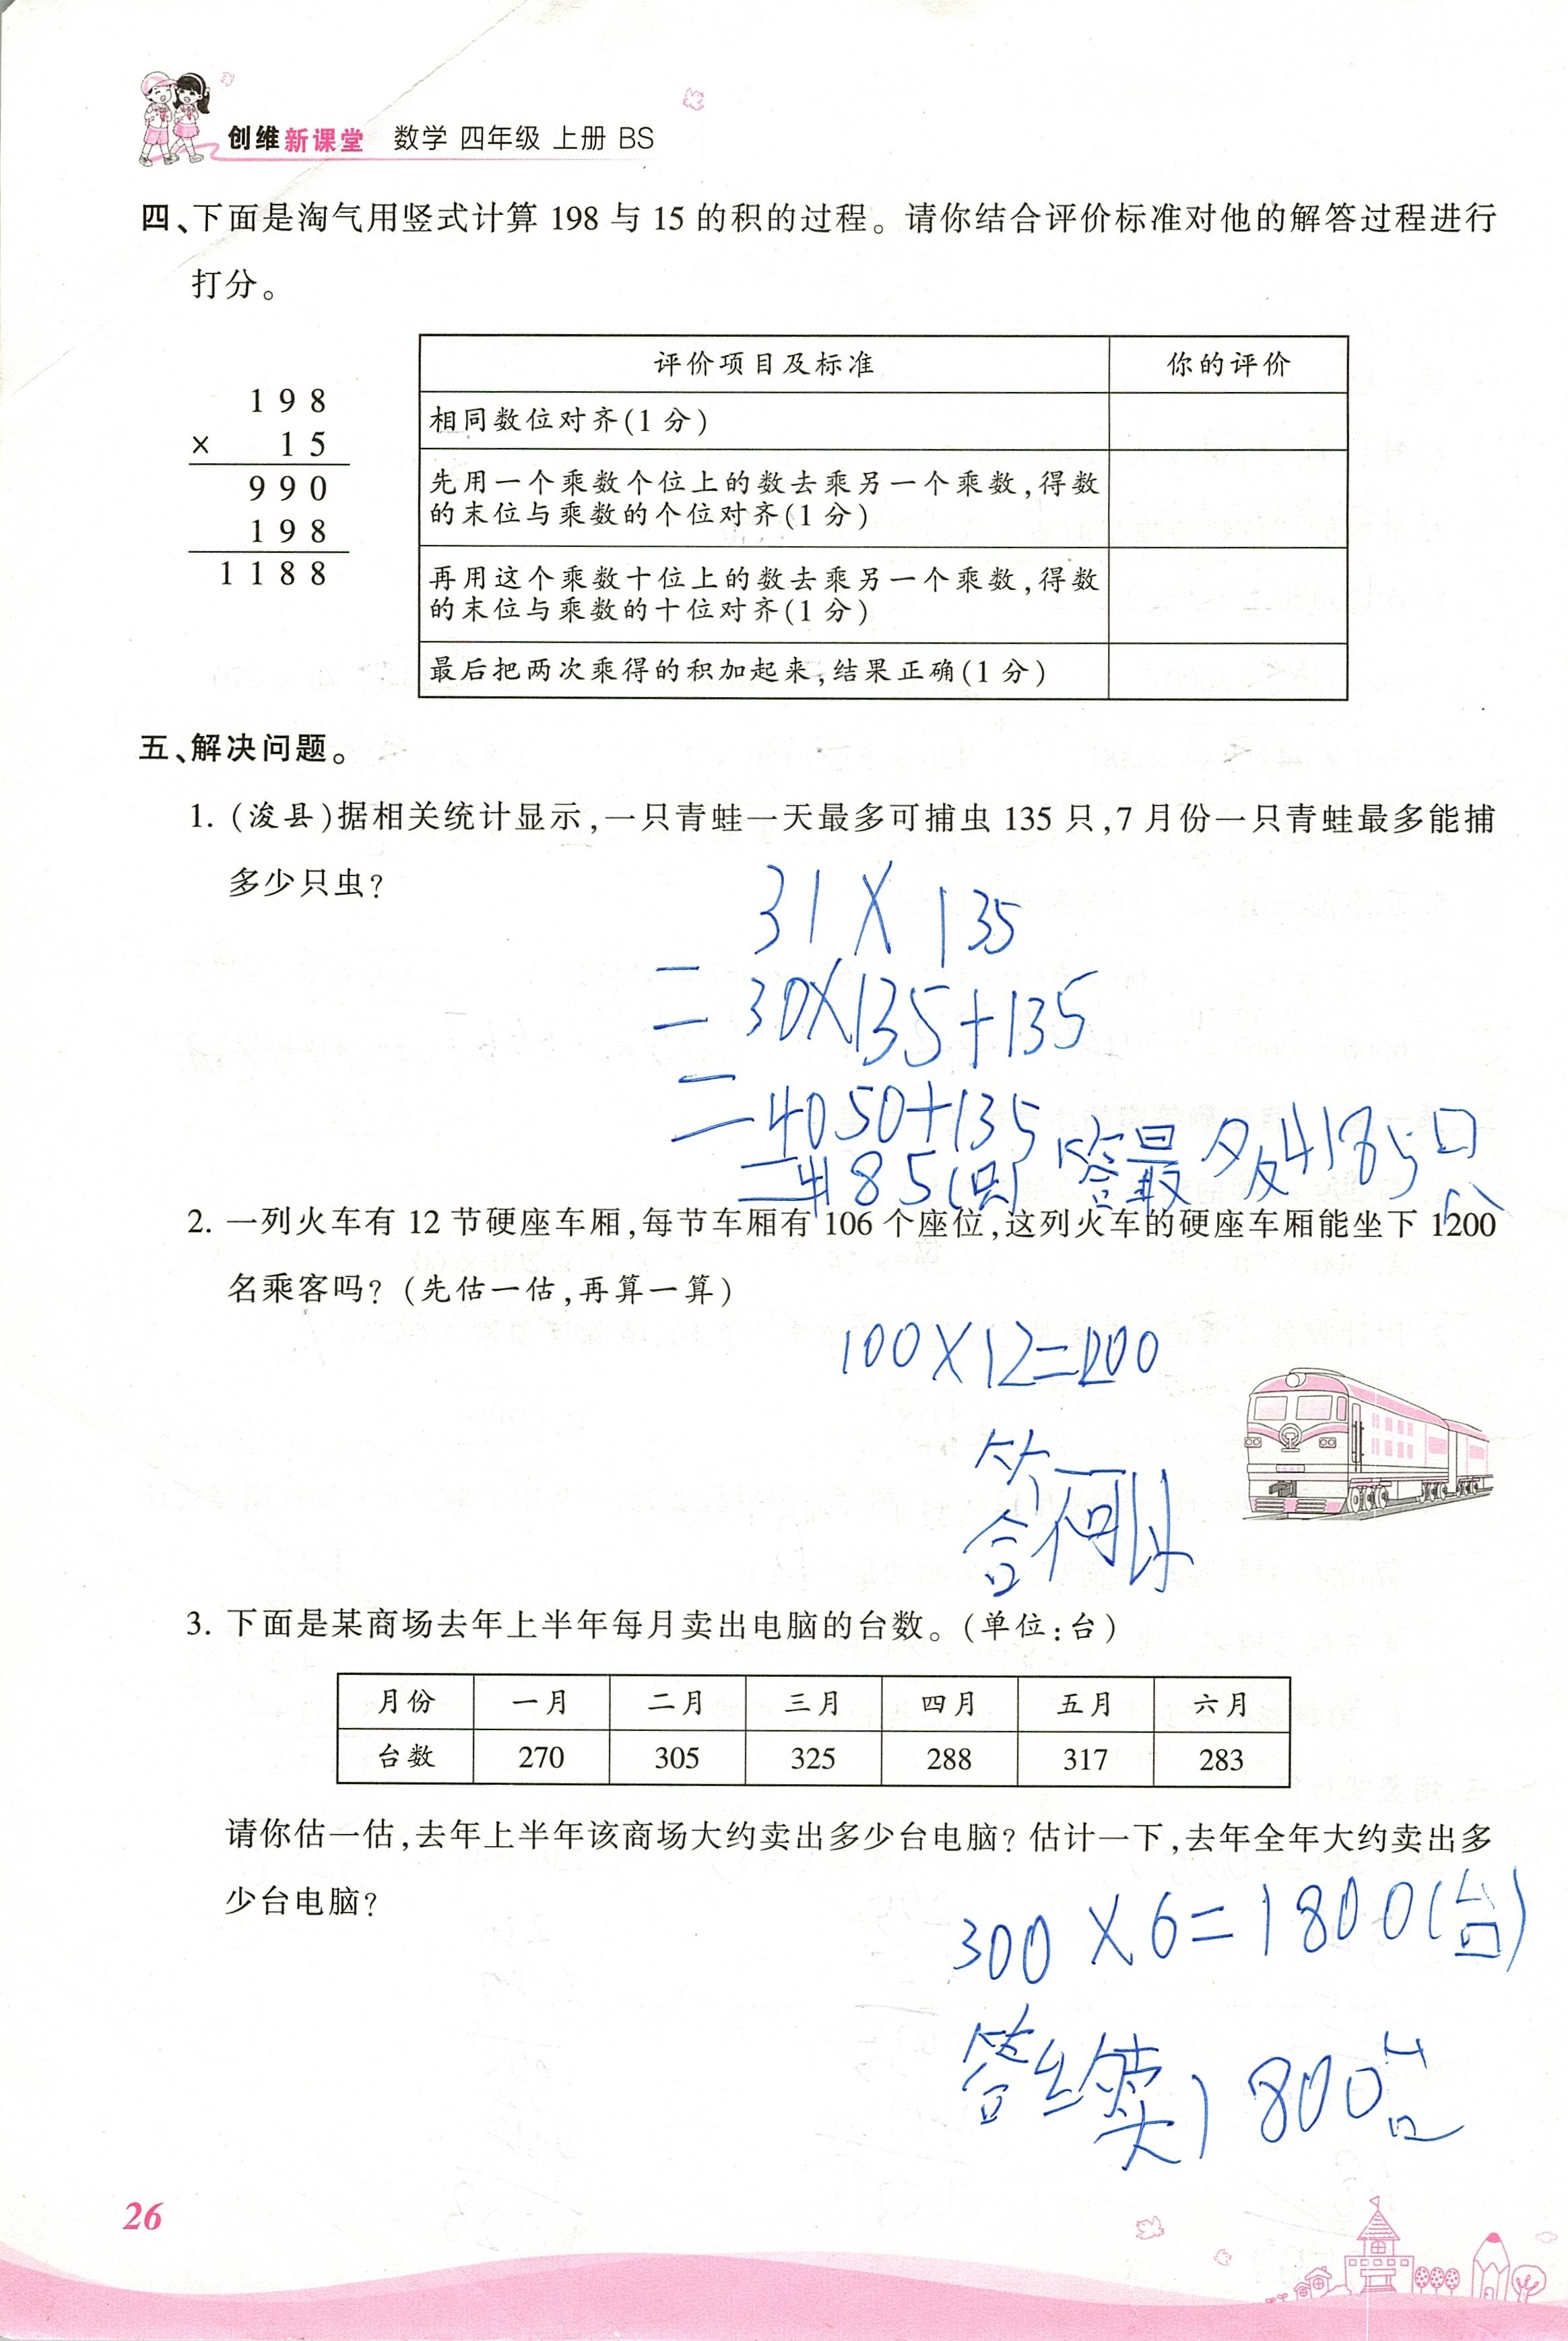 创维新课堂 数学 四年级 上册 BS
四、下面是淘气用竖式计算 198 与 15 的积的过程。请你结合评价标准对他的解答过程进行
打分。
198
× 15
990
198
1188
评价项目及标准 你的评价
相同数位对齐(1分)
先用一个乘数个位上的数去乘另一个乘数,得数
的末位与乘数的个位对齐(1分)
再用这个乘数十位上的数去乘另一个乘数,得数
的末位与乘数的十位对齐(1分)
最后把两次乘得的积加起来,结果正确(1分)
五、解决问题。
1. (浚县)据相关统计显示,一只青蛙一天最多可捕虫 135 只,7 月份一只青蛙最多能捕
多少只虫?
31×135
=30×135+135
=4050+135
=4185(只) 答最多4185只
2. 一列火车有 12 节硬座车厢,每节车厢有 106 个座位,这列火车的硬座车厢能坐下 1200
名乘客吗?(先估一估,再算一算)
100×12=1200
答可以
3. 下面是某商场去年上半年每月卖出电脑的台数。(单位:台)
月份 一月 二月 三月 四月 五月 六月
台数 270 305 325 288 317 283
请你估一估,去年上半年该商场大约卖出多少台电脑?估计一下,去年全年大约卖出多
少台电脑?
300×6=1800(台)
答 卖1800台
26